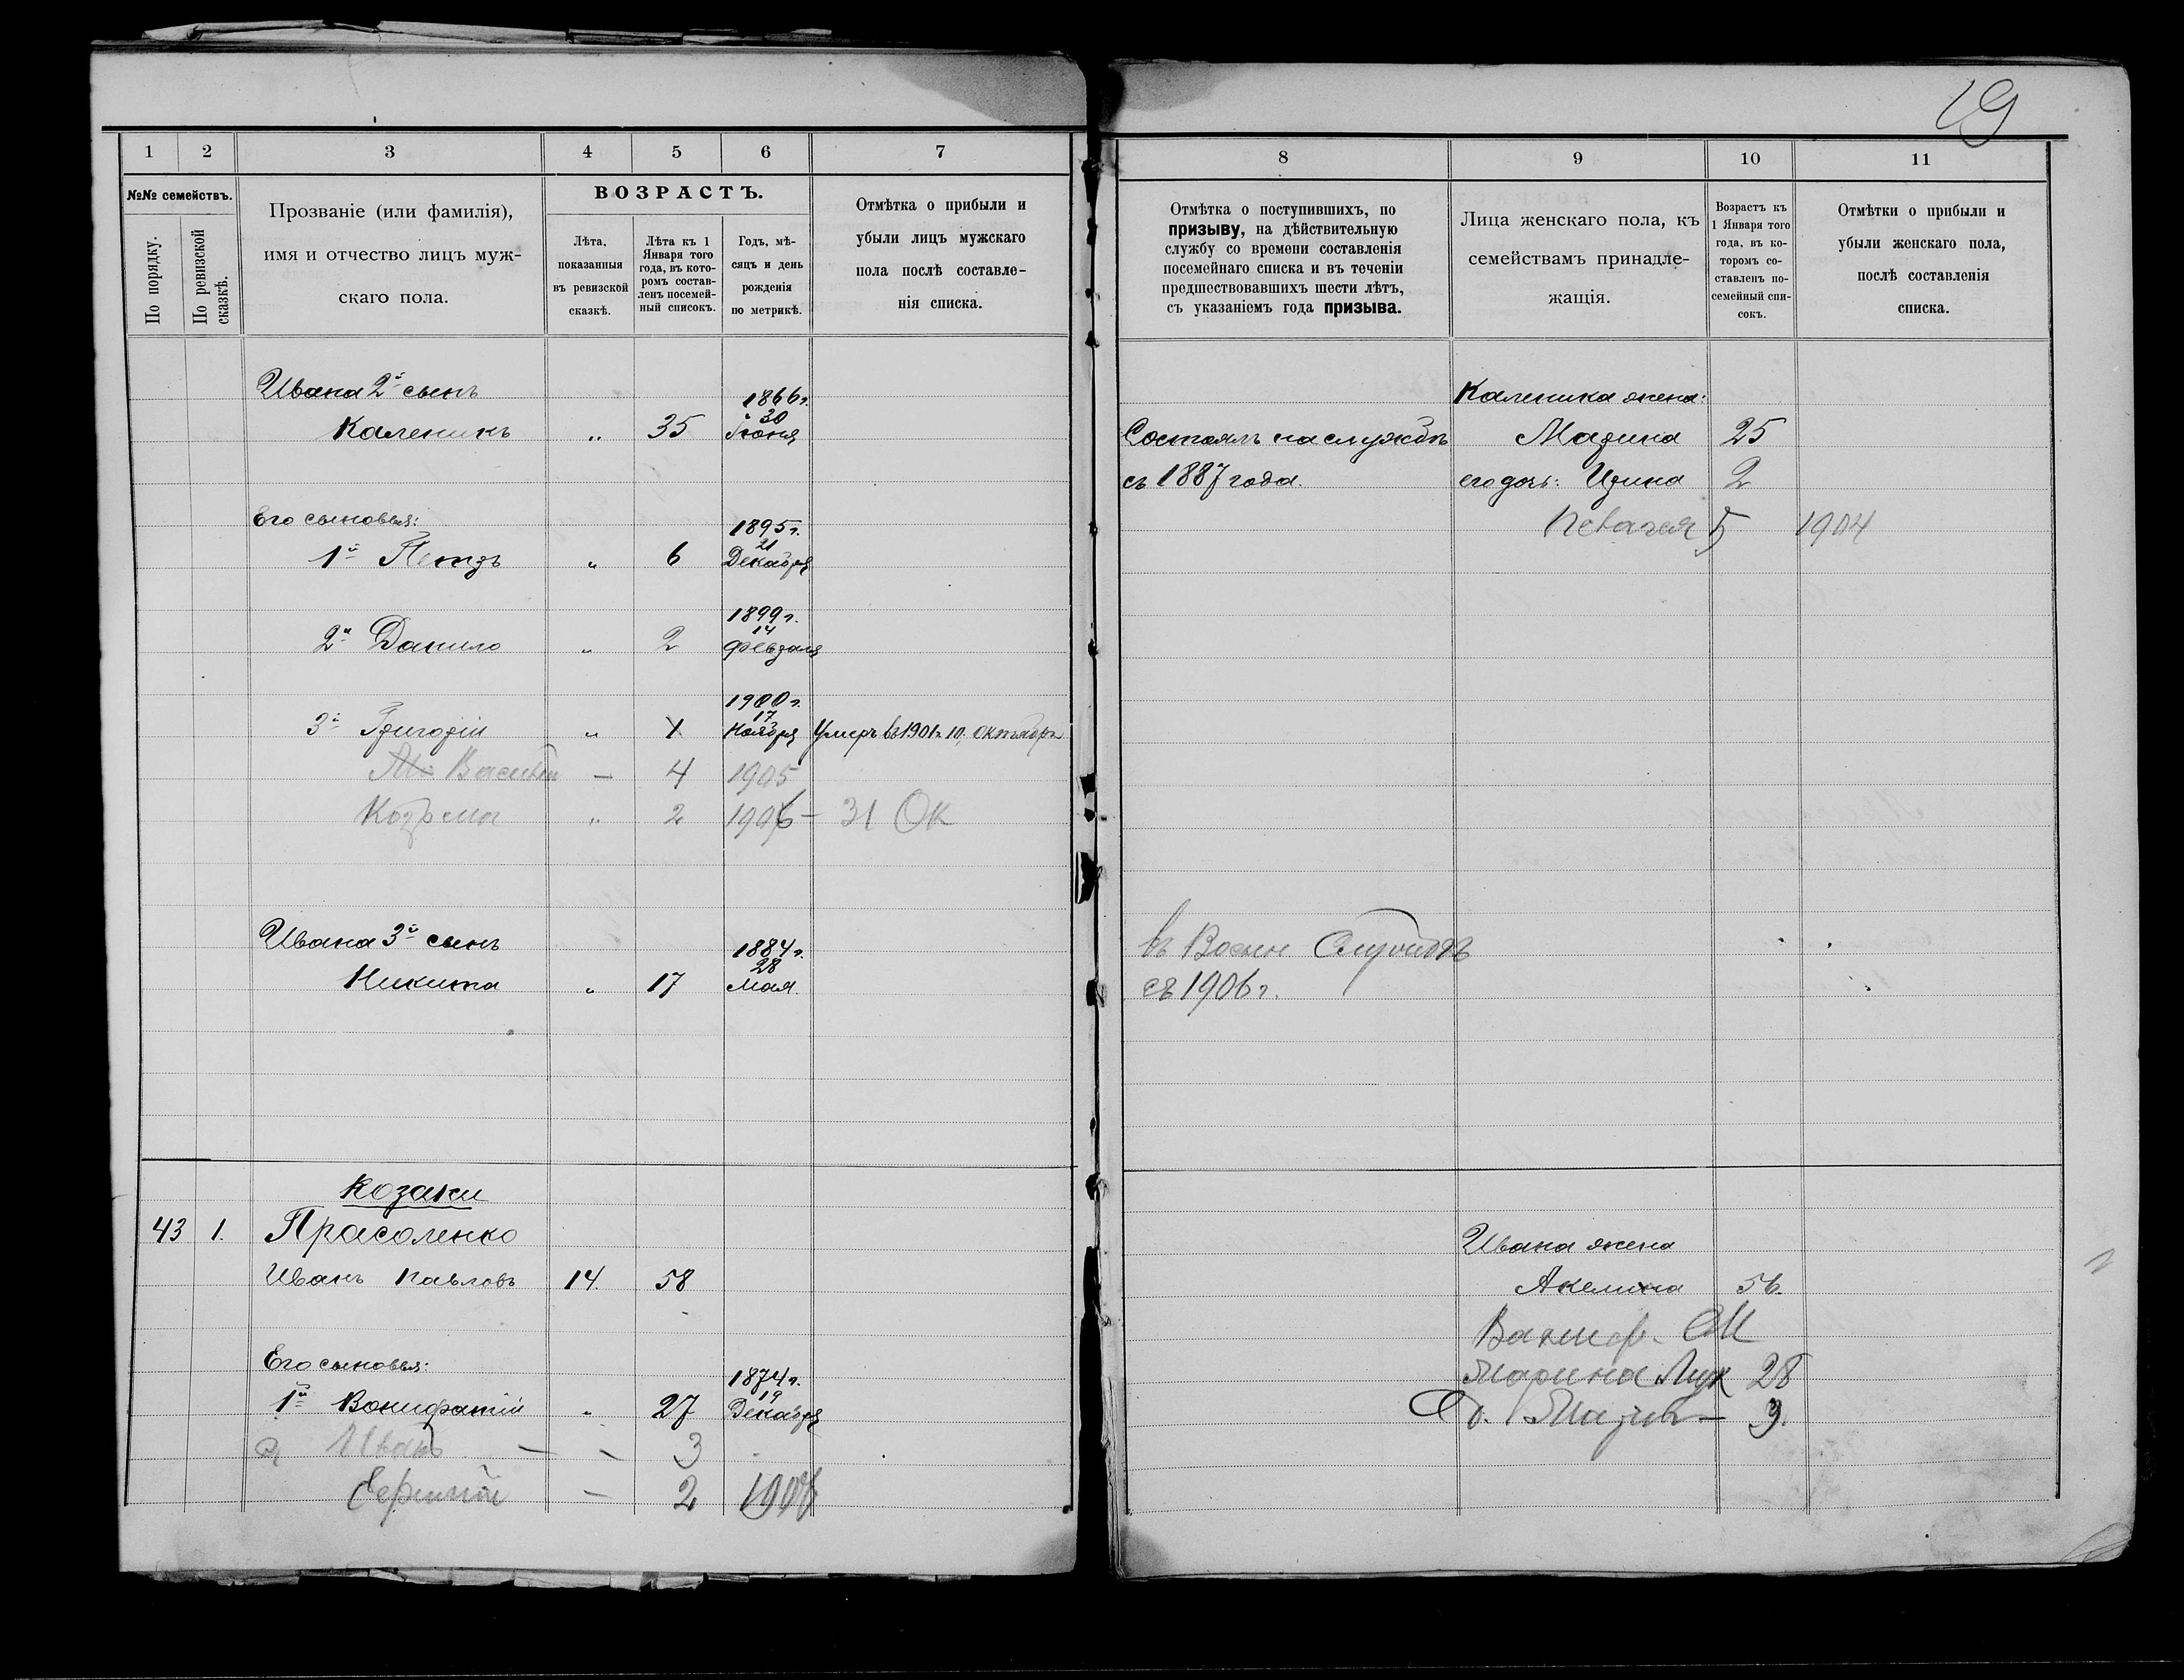 19
1 2 3 4 5 6 7
№№ семействъ.
По порядку.
По ревизской сказкѣ.
Прозваніе (или фамилія),
имя и отчество лицъ муж-
скаго пола.
ВОЗРАСТЪ.
Лѣта,
показанныя
въ ревизской
сказкѣ.
Лѣта къ 1
Января того
года, въ кото-
ромъ состав-
ленъ посемей-
ный списокъ.
Годъ, мѣ-
сяцъ и день
рожденія
по метрикѣ.
Отмѣтка о прибыли и
убыли лицъ мужскаго
пола послѣ составле-
нія списка.
Ивана 2й сынъ
Каленикъ " 35 1866г. 30 Іюня
Его сыновья:
1й Петръ " 6 1895г. 21 Декабря
2й Данило " 2 1899г. 14 Февраля
3й Григорій " 1 1900г. 17 Ноября Умеръ въ 1901г. 10 Октября
Василій — 4 1905
Козьма " 2 1906 - 31 Ок
Ивана 3й сынъ
Никита " 17 1884г. 28 Мая.
Козаки
43 1. Прасоленко
Иванъ Павловъ 14. 58
Его сыновья:
1й Вонифатій " 27 1874г. 19 Декабря
Иванъ — — 3
— 2
8 9 10 11
Отмѣтка о поступившихъ, по
призыву, на дѣйствительную
службу со времени составленія
посемейнаго списка и въ теченіи
предшествовавшихъ шести лѣтъ,
съ указаніемъ года призыва.
Лица женскаго пола, къ
семействамъ принадле-
жащія.
Возрастъ къ
1 Января того
года, въ ко-
торомъ со-
ставленъ по-
семейный спи-
сокъ.
Отмѣтки о прибыли и
убыли женскаго пола,
послѣ составленія
списка.
Каленика жена:
Состоялъ на службѣ Марина 25
съ 1887 года. его дочь: Ирина 2
5 1904
въ Воен Службѣ
съ 1906 г.
Ивана жена
Акелина 56.
Марина Лук 28
Д. 3.